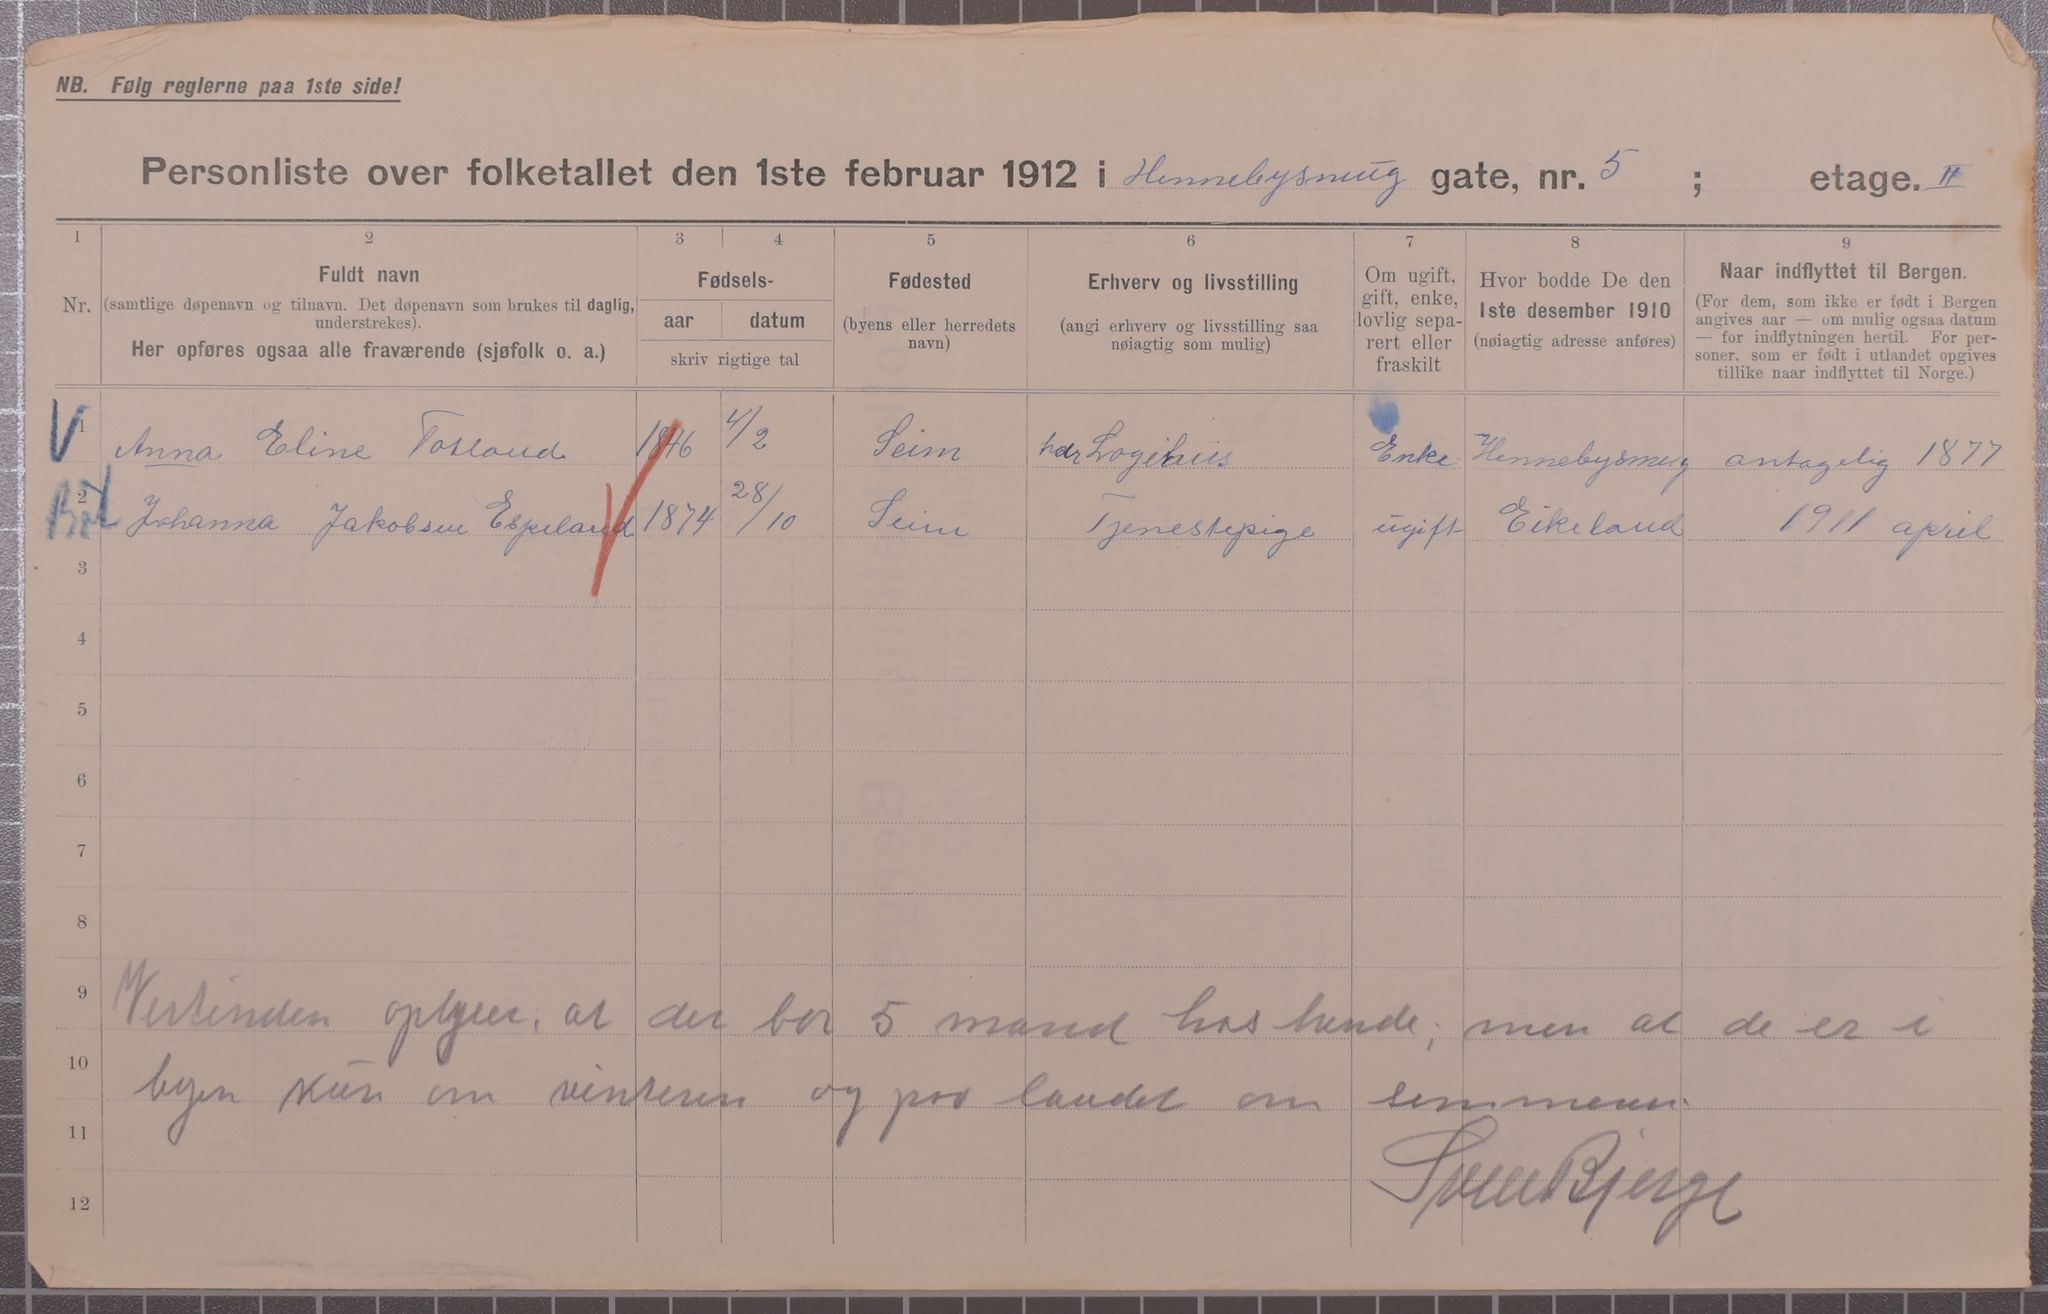 NB. Følg reglerne paa 1ste side!
Personliste over folketallet den 1ste februar 1912 i Hennebysmug gate, nr. 5 ; etage. II
1 2 3 4 5 6 7 8 9
Nr.
Fuldt navn
(samtlige døpenavn og tilnavn. Det døpenavn som brukes til daglig,
understrekes).
Her opføres ogsaa alle fraværende (sjøfolk o. a.)
Fødsels-
aar datum
skriv rigtige tal
Fødested
(byens eller herredets
navn)
Erhverv og livsstilling
(angi erhverv og livsstilling saa
nøiagtig som mulig)
Om ugift,
gift, enke,
lovlig sepa-
rert eller
fraskilt
Hvor bodde De den
1ste desember 1910
(nøiagtig adresse anføres)
Naar indflyttet til Bergen.
(For dem, som ikke er født i Bergen
angives aar — om mulig ogsaa datum
— for indflytningen hertil. For per-
soner, som er født i utlandet opgives
tillike naar indflyttet til Norge.)
V 1 Anna Eline Tosland 1846 4/2 Seim hdr Logihus Enke Hennebysmug antagelig 1877
2 Johanna Jakobsen Espeland 1874 28/10 Seim Tjenestepige ugift Eikeland 1911 april
3
4
5
6
7
8
9 Vertinden oplyser, at der bor 5 mand hos hende; men at de er i
10 byen kun om vinteren og paa landet om sommeren.
11
12